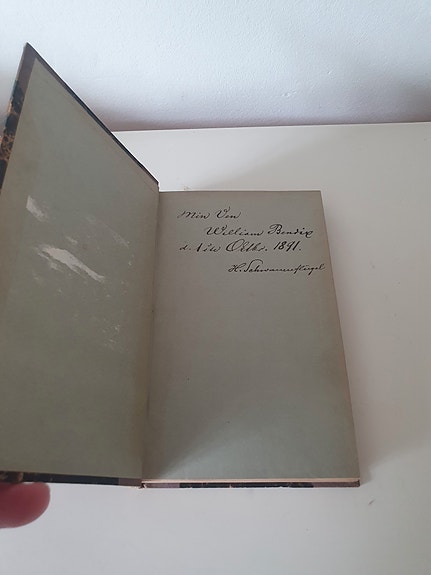 Min Ven
William Bendix
d. 1ste Oktbr. 1891.
H. Schwanenflügel